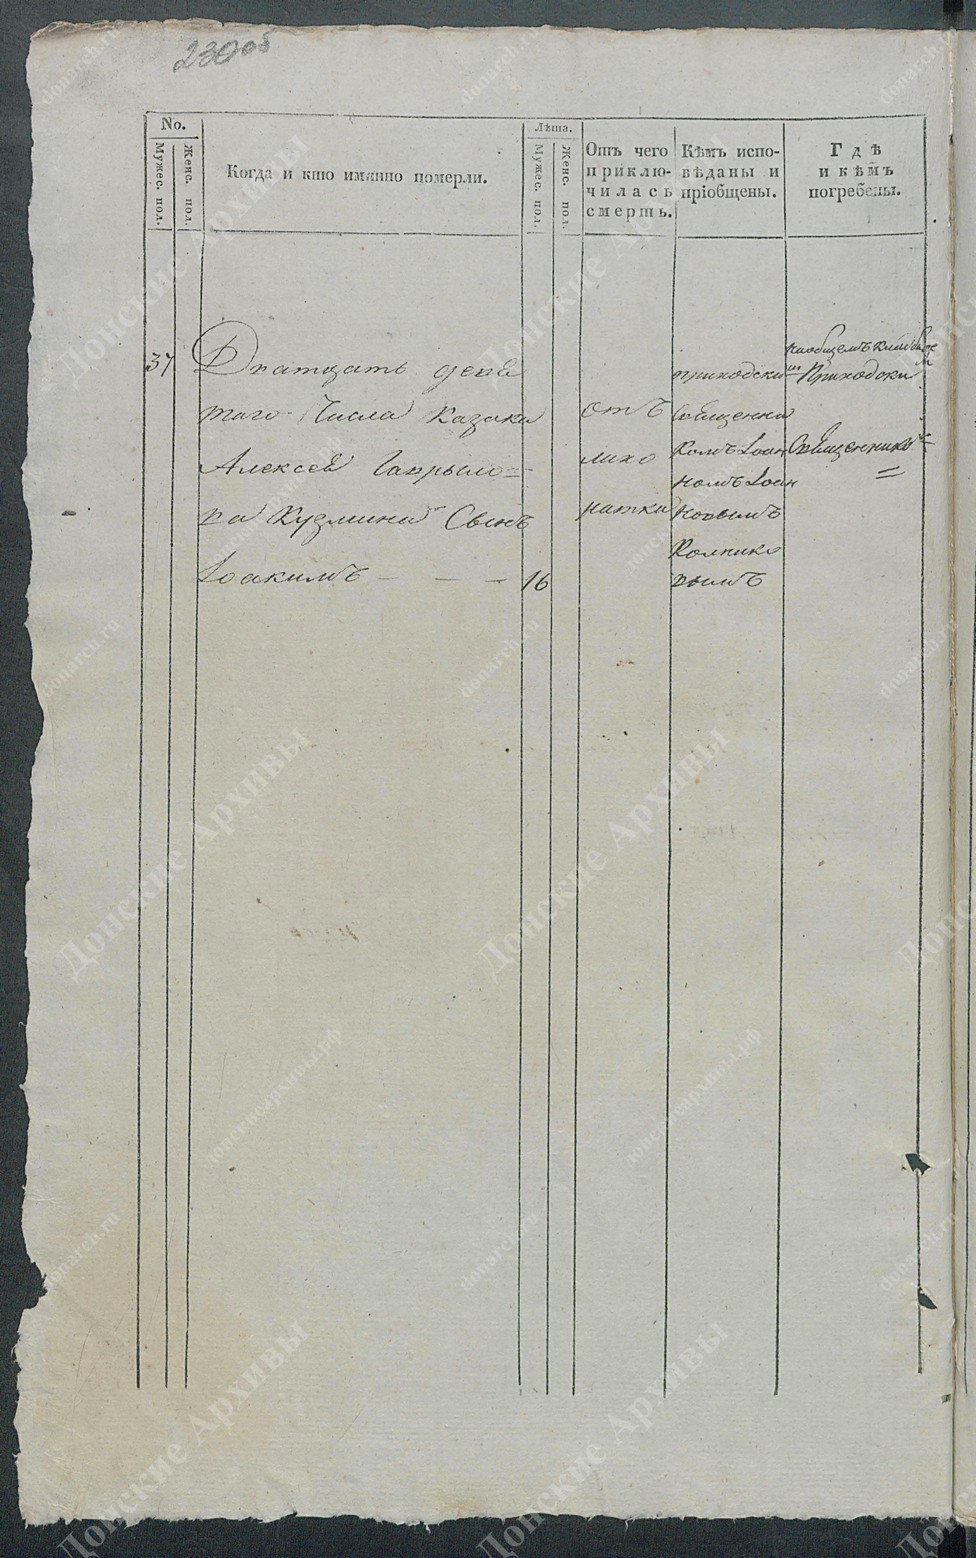 230 об
No.
Мужес. пол.
Женс. пол.
Когда и кто имянно померли.
Лѣта.
Мужес. пол.
Женс. пол.
Отъ чего
приклю-
чилась
смерть.
Кѣмъ испо-
вѣданы и
пріобщены.
Гдѣ
и кѣмъ
погребены.
37
Дватцать девя
таго Числа Казака
Алексея Гаврыло=
ва Кузмина Сынъ
Іоакимъ — — — 16
отъ
лихо
ратки
приходски
Священни
комъ Іоан
номъ Іоан
новымъ
Колпико
вымъ
на общемъ
Приходски
Священнико
Донские Архивы
donarch.ru
донскиеархивы.рф